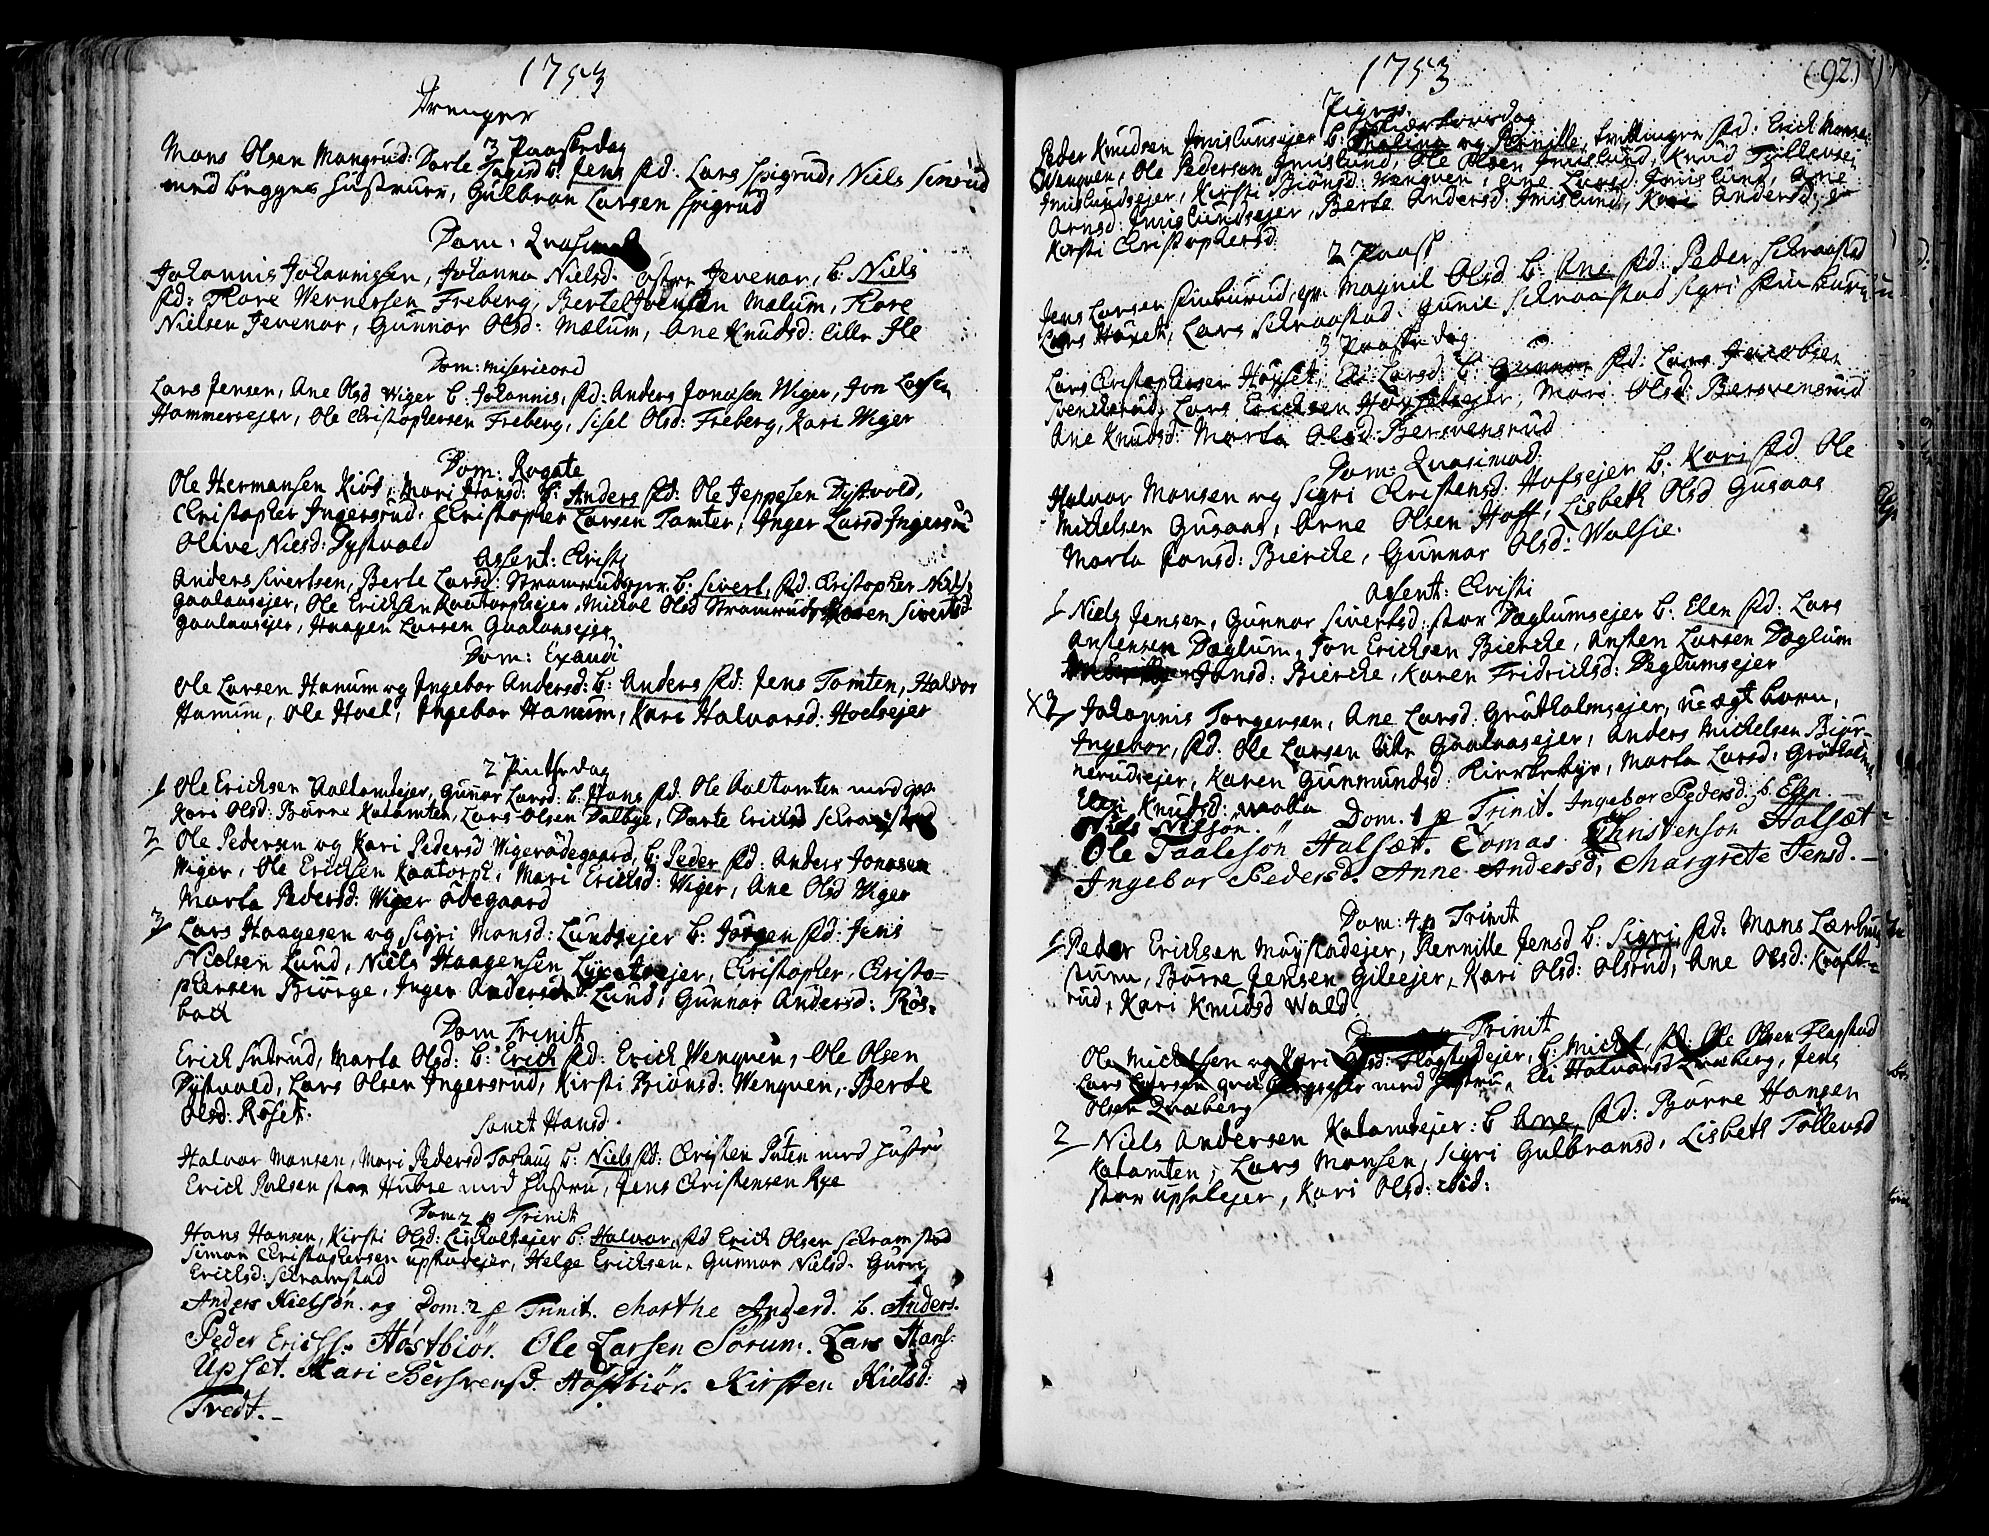 1753
Drenger
3 Paaskedag
Mons Olsen Mangrud: Dorte Tagisd b. Jens fd. Lars Spigrud, Niels Simrud
med begges hustruer, Gulbran Larsen Spigrud
Dom: Quasimod
Johannis Johannissen, Johanna Nielsd: Østre Jevenar, b: Niels
fd: Tore Wernersen Freberg, Bertel Iversen Mælum, Tore
Nielsen Jevenar, Gunnor Olsd: Mælum, Ane Knudsd: lille Ile
Dom: Misericord
Lars Jensen, Ane Olsd Wiger b. Johannis, fd: Anders Jonasen Wiger, Jon Larsen
Hammersejer, Ole Christophersen Freberg, Sisel Olsd: Freberg, Kari Wiger
Dom: Rogate
Ole Hermansen Kiøs, Mari Hansd: b: Anders fd: Ole Jeppesen Dystvold,
Christopher Ingersrud, Christopher Larsen Tomter, Inger Larsd Ingersru
Olive Nielsd: Dystvold
Assent: Christi
Anders Sivertsen, Berte Larsd: Stramrudsejer, b: Sivert, fd: Christopher Niels
Gaalaasejer, Ole Erichsen Kaatorpsejer, Mickel Olsd Stramrud, Karen Sivertsd
Gaalaasejer, Haagen Larsen Gaalaasejer
Dom: Exaudi
Ole Larsen Hanum og Ingebor Andersd: b: Anders fd: Jens Tomten, Halvor
Hanum, Ole Hoel, Ingebor Hanum, Kari Halvorsd: Hoelsejer
2 Pintsedag
1 Ole Erichsen Aaltomtejer, Gunor Larsd: b: Hans fd. Ole Aaltomten med qv.
Kari Olsd: Børre Katomten, Lars Olsen Dalbye, Dorte Ericksd Schramstad
2 Ole Pedersen og Kari Pedersd Wigerødegaard, b: Peder fd: Anders Jonasen
Wiger, Ole Erichsen Kaatorp, Mari Ericksd: Wiger, Ane Olsd Wiger
Marta Pedersd: Wiger Ødegaard
3 Lars Haagesen og Sigri Monsd: Lundsejer b: Jørgen fd: Jens
Nielsen Lund, Niels Haagensen Lyxetsejer, Christopher Christo=
phersen Biørge, Inger Andersd: Lund, Gunnor Andersd: Røs=
back
Dom Trinit
Erich Sntrud, Marta Olsd: b: Erich fd: Erich Wenquen, Ole Olsen
Dystvold, Lars Olsen Ingersrud, Kirsti Biønsd: Wenquen, Berte
Olsd: Røset:
Sanct Hansd.
Halvor Monsen, Mari Pedersd Torhaug b: Niels fd: Christen Puten med hustru
Erich Palsen stor Hubre med hustru, Jens Christensen Rye
Dom 2 p Trinit
Hans Hansen, Kirsti Olsd: Linholtejer b: Halvor, fd Erich Olsen Schramstad
Simon Christophersen Upstadejer, Helge Ericksen, Gunnor Nielsd. Gurri
Ericksd: Schramstad
Anders Nielsøn og Dom: 2 p Trinit. Marthe Anderd. b. Anders.
Peder Erichs. Høstbiør. Ole Larsen Sørum. Lars Hans:
Upsæt. Mari Bersvensd. Høstbiør. Kirsten Nielsd:
Tvedt.

1753
(92)
Piger
Skiærtorsdag
Peder Knudsen Imislunsejer b: Malina og Pernille, tvillinger fd: Erick Monsen
Wenquen, Ole Pedersen Imislund, Ole Olsen Imislund, Knud Tollevsen
Imislundsejer, Kirsti Biønsd: Wenquen, Ane Larsd: Imislund, Ane
Arnsd: Imislundsejer, Berte Andersd: Imislund, Kari Andersd: &
Kirsti Christophersd:
2 Paask
Jens Larsen Stinburud, qv. Magnil Olsd b: Ane fd: Peder Schraastad
Lars Høvet, Lars Schraastad, Gunil Schraastad Sigri Stinburud
3 Paaskedag
Lars Christophersen Høyset, Eli Larsd: b: Gunnor fd: Lars Jacobsen
Svenckrud, Lars Ericksen Høysetsejer, Mari Olsd: Bersvensrud
Ane Knudsd: Marta Olsd: Bersvensrud
Dom: Quasimod:
Halvor Monsen og Sigri Christensd: Hofsejer b: Kari fd Ole
Mickelsen Gusaas, Arne Olsen Hoff, Lisbeth Olsd Gusaas
Marta Jonsd: Biercke, Gunnor Olsd: Walsie.
Assent: Christi
1 Niels Jensen, Gunnor Sivertsd: stor Dæglumsejer b: Elen fd: Lars
Anstensen Dæglum, Jon Ericksen Biercke, Ansten Larsen Dæglum
Jonsd: Biercke, Karen Fridricksd: Dæglumsejer
x 2 Johannis Torgersen, Ane Larsd: Grøtholmsejer, uægt barn,
Ingebor, fd. Ole Larsen lille Gaalaasejer, Anders Mickelsen Biør=
nerudsejer, Karen Gunmundsd: Kirckebye, Marta Larsd: Grøtholms
Knudsd: Dom. 1 p Trinit. Ingebor Pedersd: b. Elen.
Niels Nilsøn.
Ole Paalesøn Halsæt. Tomas Christensøn Halsæt=
Ingebor Pedersd. Anne Andersd; Margrete Jensd.
Dom: 4 p Trinit
1 Peder Ericksen Møystadejer, Pernille Jensd b: Sigri, fd: Mons Lærbuss
stuen, Børre Jensen Gileejer, Kari Olsd: Olsrud, Ane Olsd: Kraft=
rud, Kari Knudsd Wold
Trinit
Ole Mickelsen og Kari Olsd: Flagstadejer, b: Mickel, fd: Ole Olsen Flagstad
Lars Larsen med hustru, Eli Halvorsd Qvæberg, Jens
Olsen Qvæberg
2 Niels Andersen Katomtejer: b Ane, fd: Børre Hansen
Katomten, Lars Monsen, Sigri Gulbransd, Lisbeth Tollevsd
stor Upsalejer, Kari Olsd: ibid: